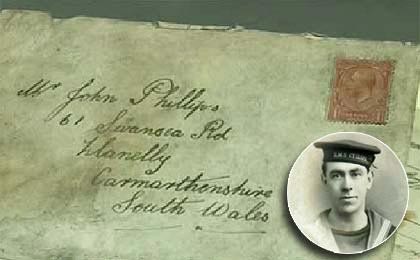 Mr John Phillips
61 Swansea Rd
Llanelly
Carmarthenshire
South Wales